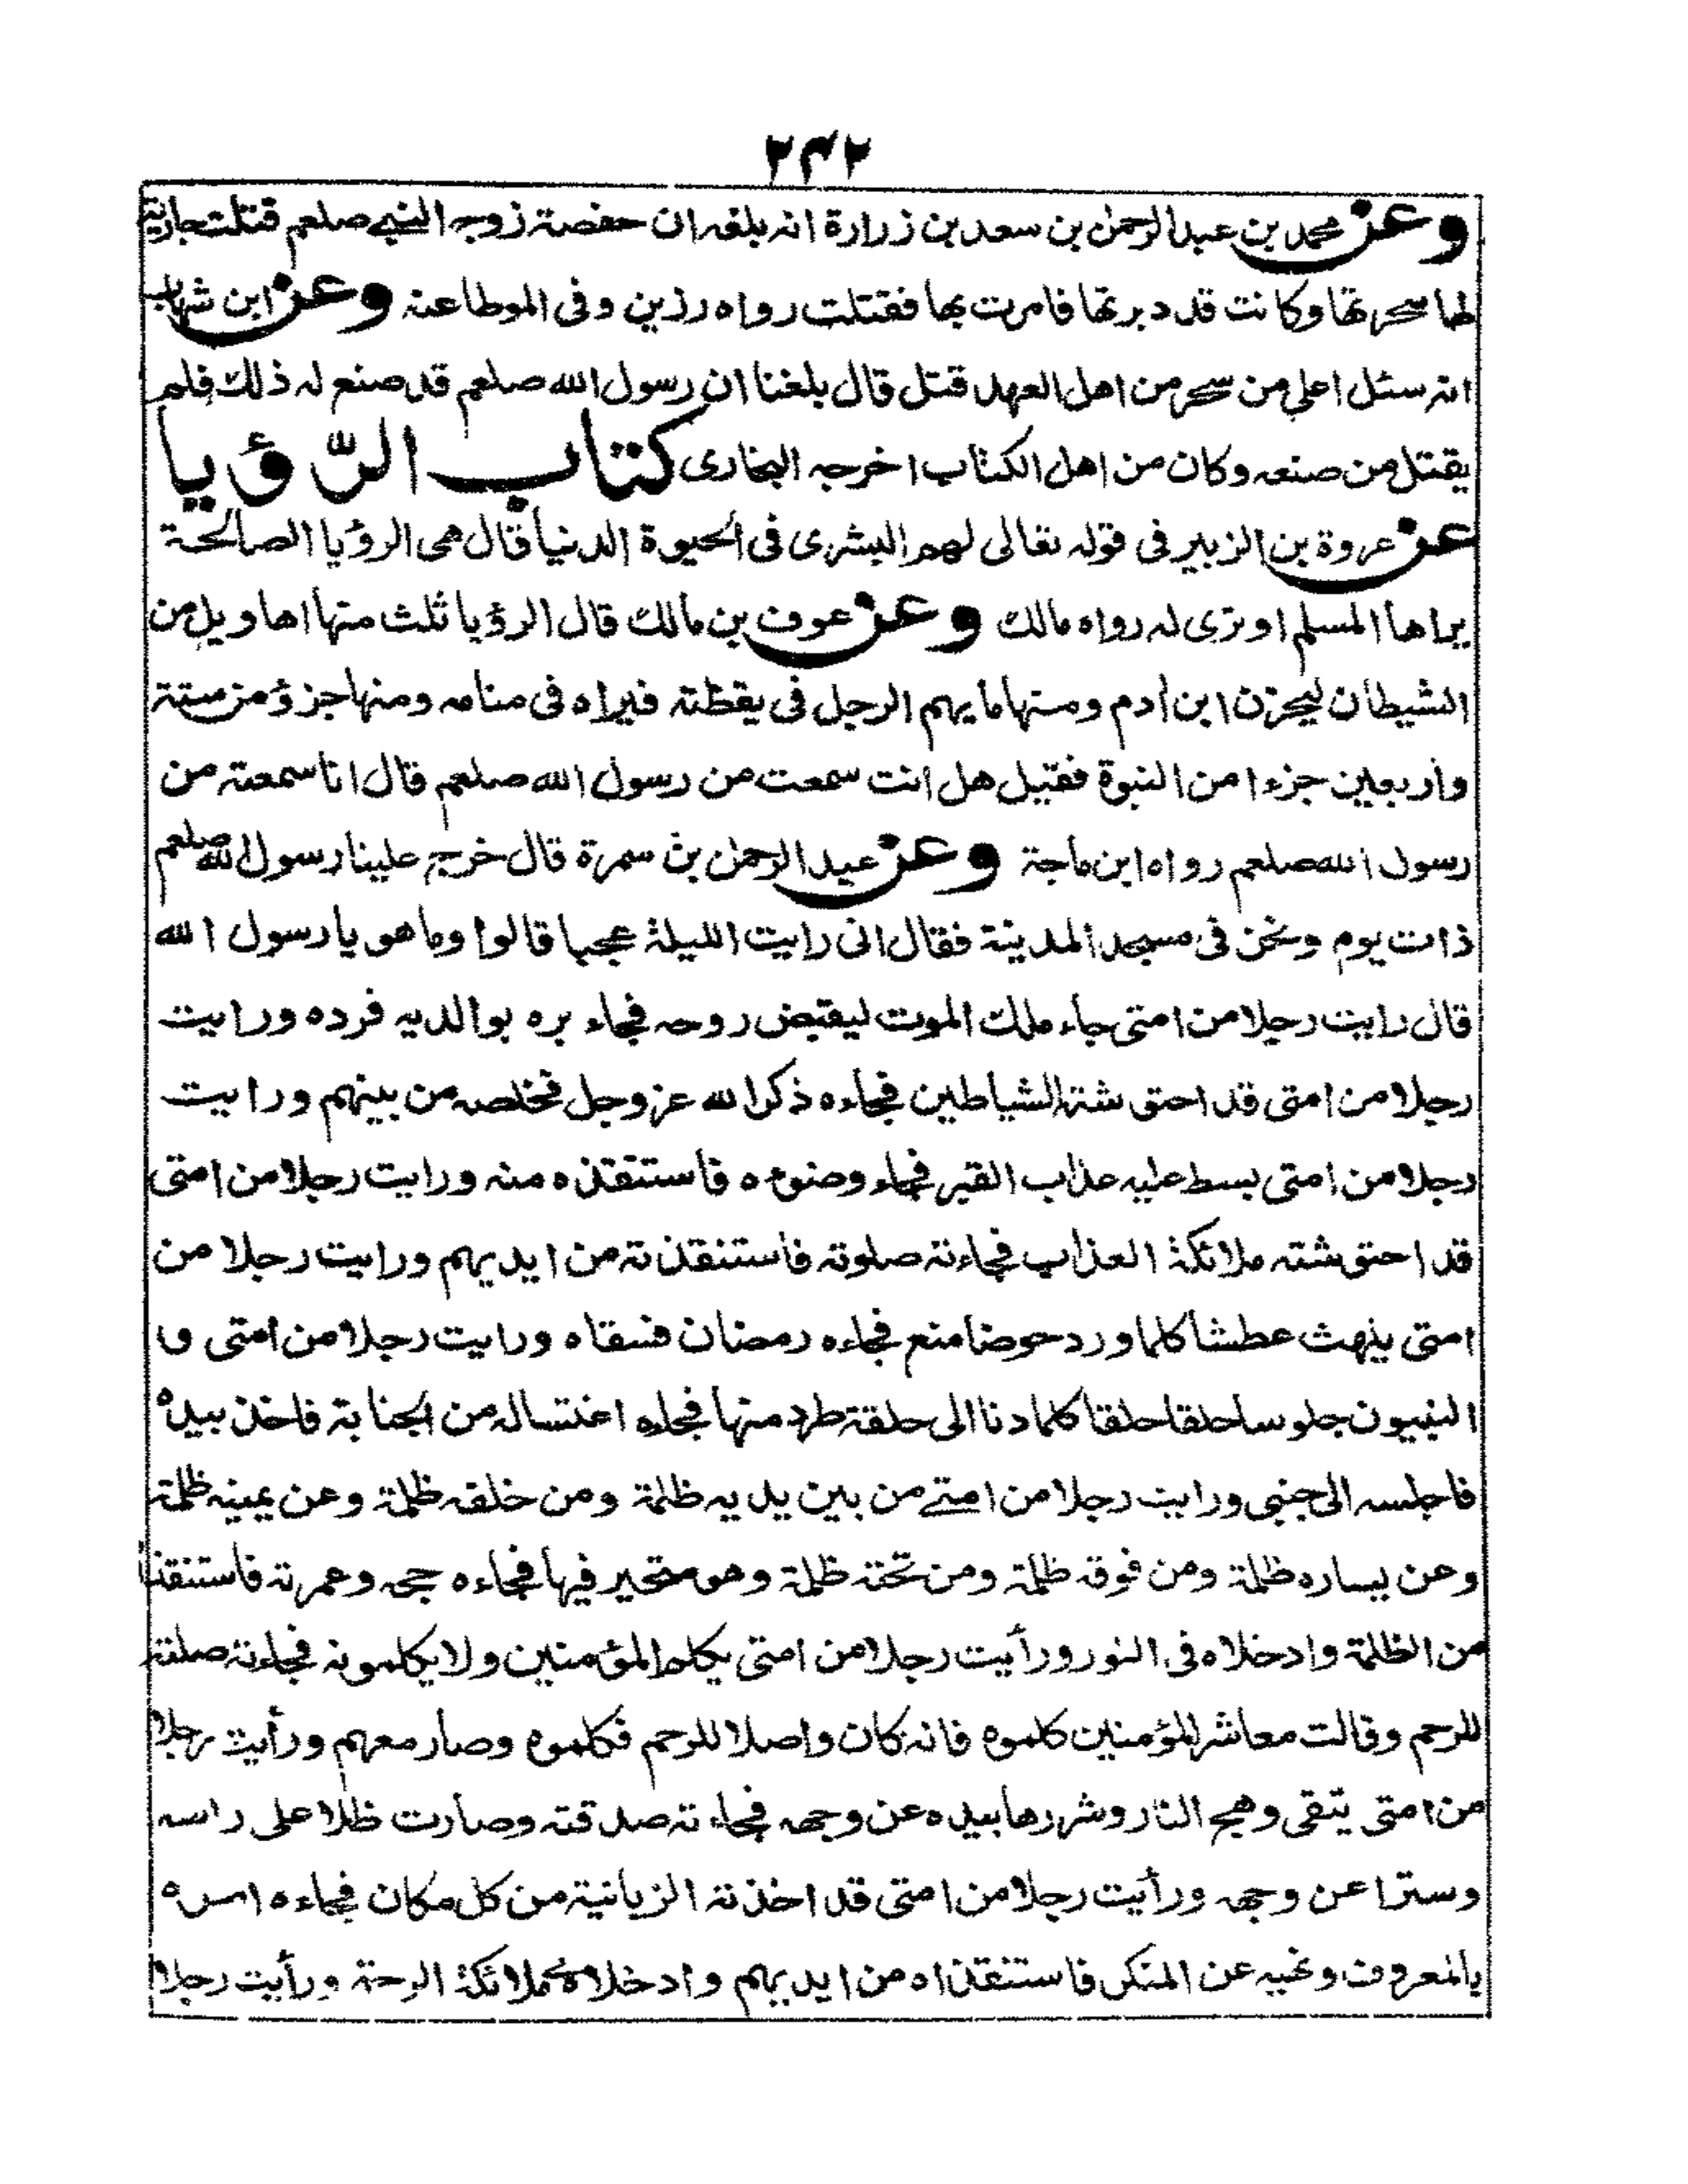 ٢٤٢
وعن محمد بن عبد الرحمن بن سعد بن زرارة انه بلغه ان حفصة زوجه النبي صلعم قتلت جارية
لها سحرتها وكانت قد دبرتها فامرت بها فقتلت رواه رزين وفى الموطا عنه وعن ابن شهاب
انه سئل اعلى من سحر من اهل العهد قتل قال بلغنا ان رسول الله صلعم قد صنع له ذلك فلم
يقتل من صنعه وكان من اهل الكتاب اخرجه البخارى كتاب الرّؤيا
عن عروة بن الزبير فى قوله تعالى لهم البشرى فى الحيوة الدنيا قال هى الرؤيا الصالحة
يراها المسلم او ترى له رواه مالك وعن عوف بن مالك قال الرؤيا ثلث منها اهاويل من
الشيطان ليحزن ابن ادم ومنها ما يهم الرجل فى يقظته فيراه فى منامه ومنها جزؤ من ستة
وأربعين جزءا من النبوة فقيل هل انت سمعت من رسول الله صلعم قال انا سمعته من
رسول الله صلعم رواه ابن ماجة وعن عبد الرحمن بن سمرة قال خرج علينا رسول الله صلعم
ذات يوم ونحن فى مسجد المدينة فقال انى رايت الليلة عجبا قالوا وما هو يا رسول الله
قال رايت رجلا من امتى جاء ملك الموت ليقبض روحه فجاء بره بوالديه فرده ورايت
رجلا من امتى قد احتوشته الشياطين فجاءه ذكر الله عز وجل فخلصه من بينهم ورايت
رجلا من امتى بسط عليه عذاب القبر فجاء وضوءه فاستنقذه منه ورايت رجلا من امتى
قد احتوشته ملائكة العذاب فجاءته صلوته فاستنقذته من ايديهم ورايت رجلا من
امتى يلهث عطشا كلما ورد حوضا منع فجاءه رمضان فسقاه ورايت رجلا من امتى و
النبيون جلوسا حلقا حلقا كلما دنا الى حلقة طرد منها فجاءه اغتساله من الجنابة فاخذ بيده
فاجلسه الى جنبى ورايت رجلا من امتے من بين يديه ظلمة ومن خلفه ظلمة وعن يمينه ظلمة
وعن يساره ظلمة ومن فوقه ظلمة ومن تحته ظلمة وهو متحير فيها فجاءه حجه وعمرته فاستنقذا
من الظلمة وادخلاه فى النور ورأيت رجلا من امتى يكلم المؤمنين ولا يكلمونه فجاءته صلته
للرحم وقالت معاشر المؤمنين كلموه فانه كان واصلا للرحم فكلموه وصار معهم ورأيت رجلا
من امتى يتقى وهج النار وشررها بيده عن وجهه فجاءته صدقته وصارت ظلا على راسه
وسترا عن وجهه ورأيت رجلا من امتى قد اخذته الزبانية من كل مكان فجاءه امره
بالمعروف ونهيه عن المنكر فاستنقذاه من ايديهم وادخلاه ملائكة الرحمة ورأيت رجلا